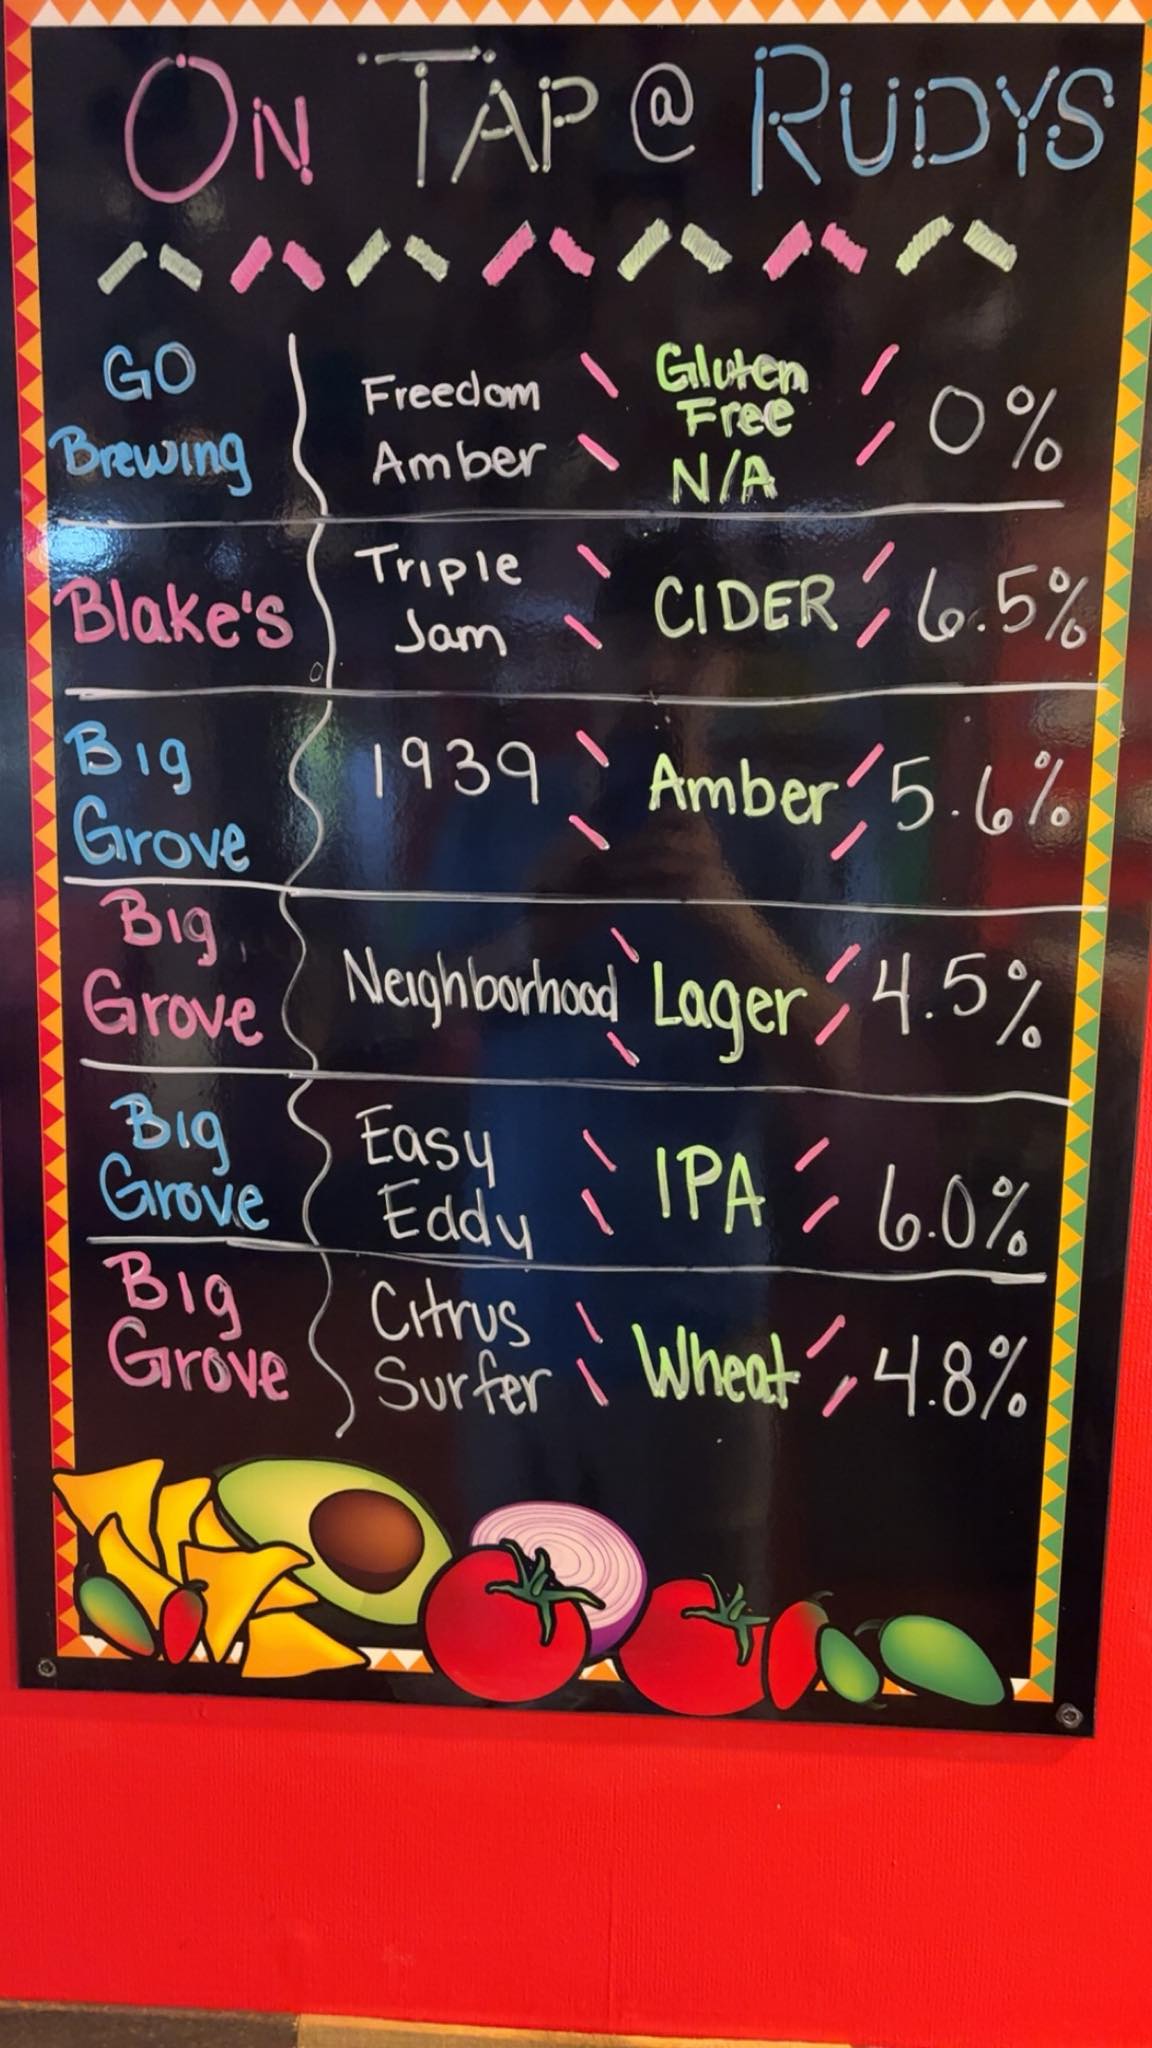 On Tap @ Rudys
GO Brewing Freedom Amber Gluten Free N/A 0%
Blake's Triple Jam CIDER 6.5%
Big Grove 1939 Amber 5.6%
Big Grove Neighborhood Lager 4.5%
Big Grove Easy Eddy IPA 6.0%
Big Grove Citrus Surfer Wheat 4.8%